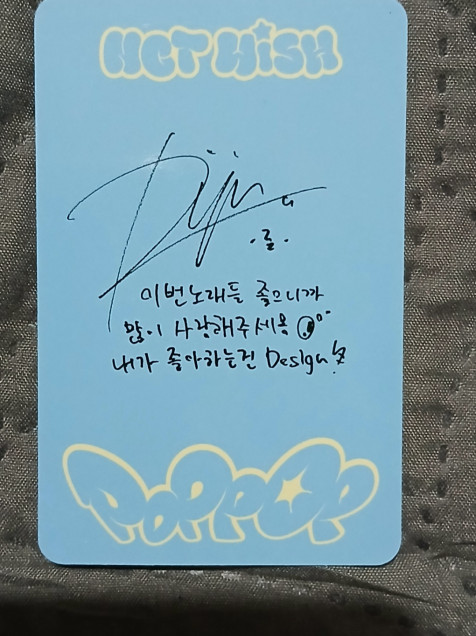 NCT WiSH
Riku
이번노래들 좋으니까
많이 사랑해주세용
내가 좋아하는건 Design!
POPPOP